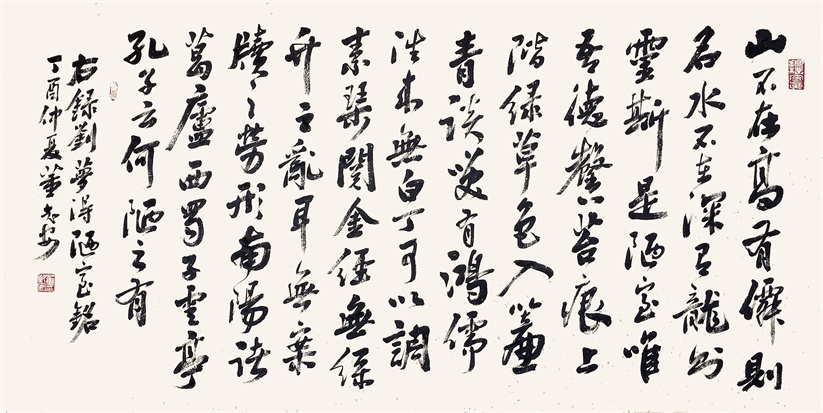 山不在高有僊則
名水不在深有龍則
靈斯是陋室唯
吾德馨苔痕上
階緑草色入簾
青談笑有鴻儒
往來無白丁可以調
素琴閱金經無絲
竹之亂耳無案
牘之勞形南陽諸
葛廬西蜀子雲亭
孔子云何陋之有
右録劉夢得陋室銘
丁酉仲夏董